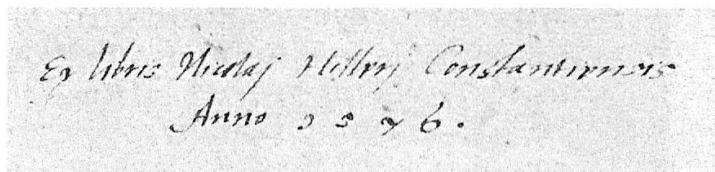 Ex libris Nicolaj Hellerj Constantiensis
Anno 1576.